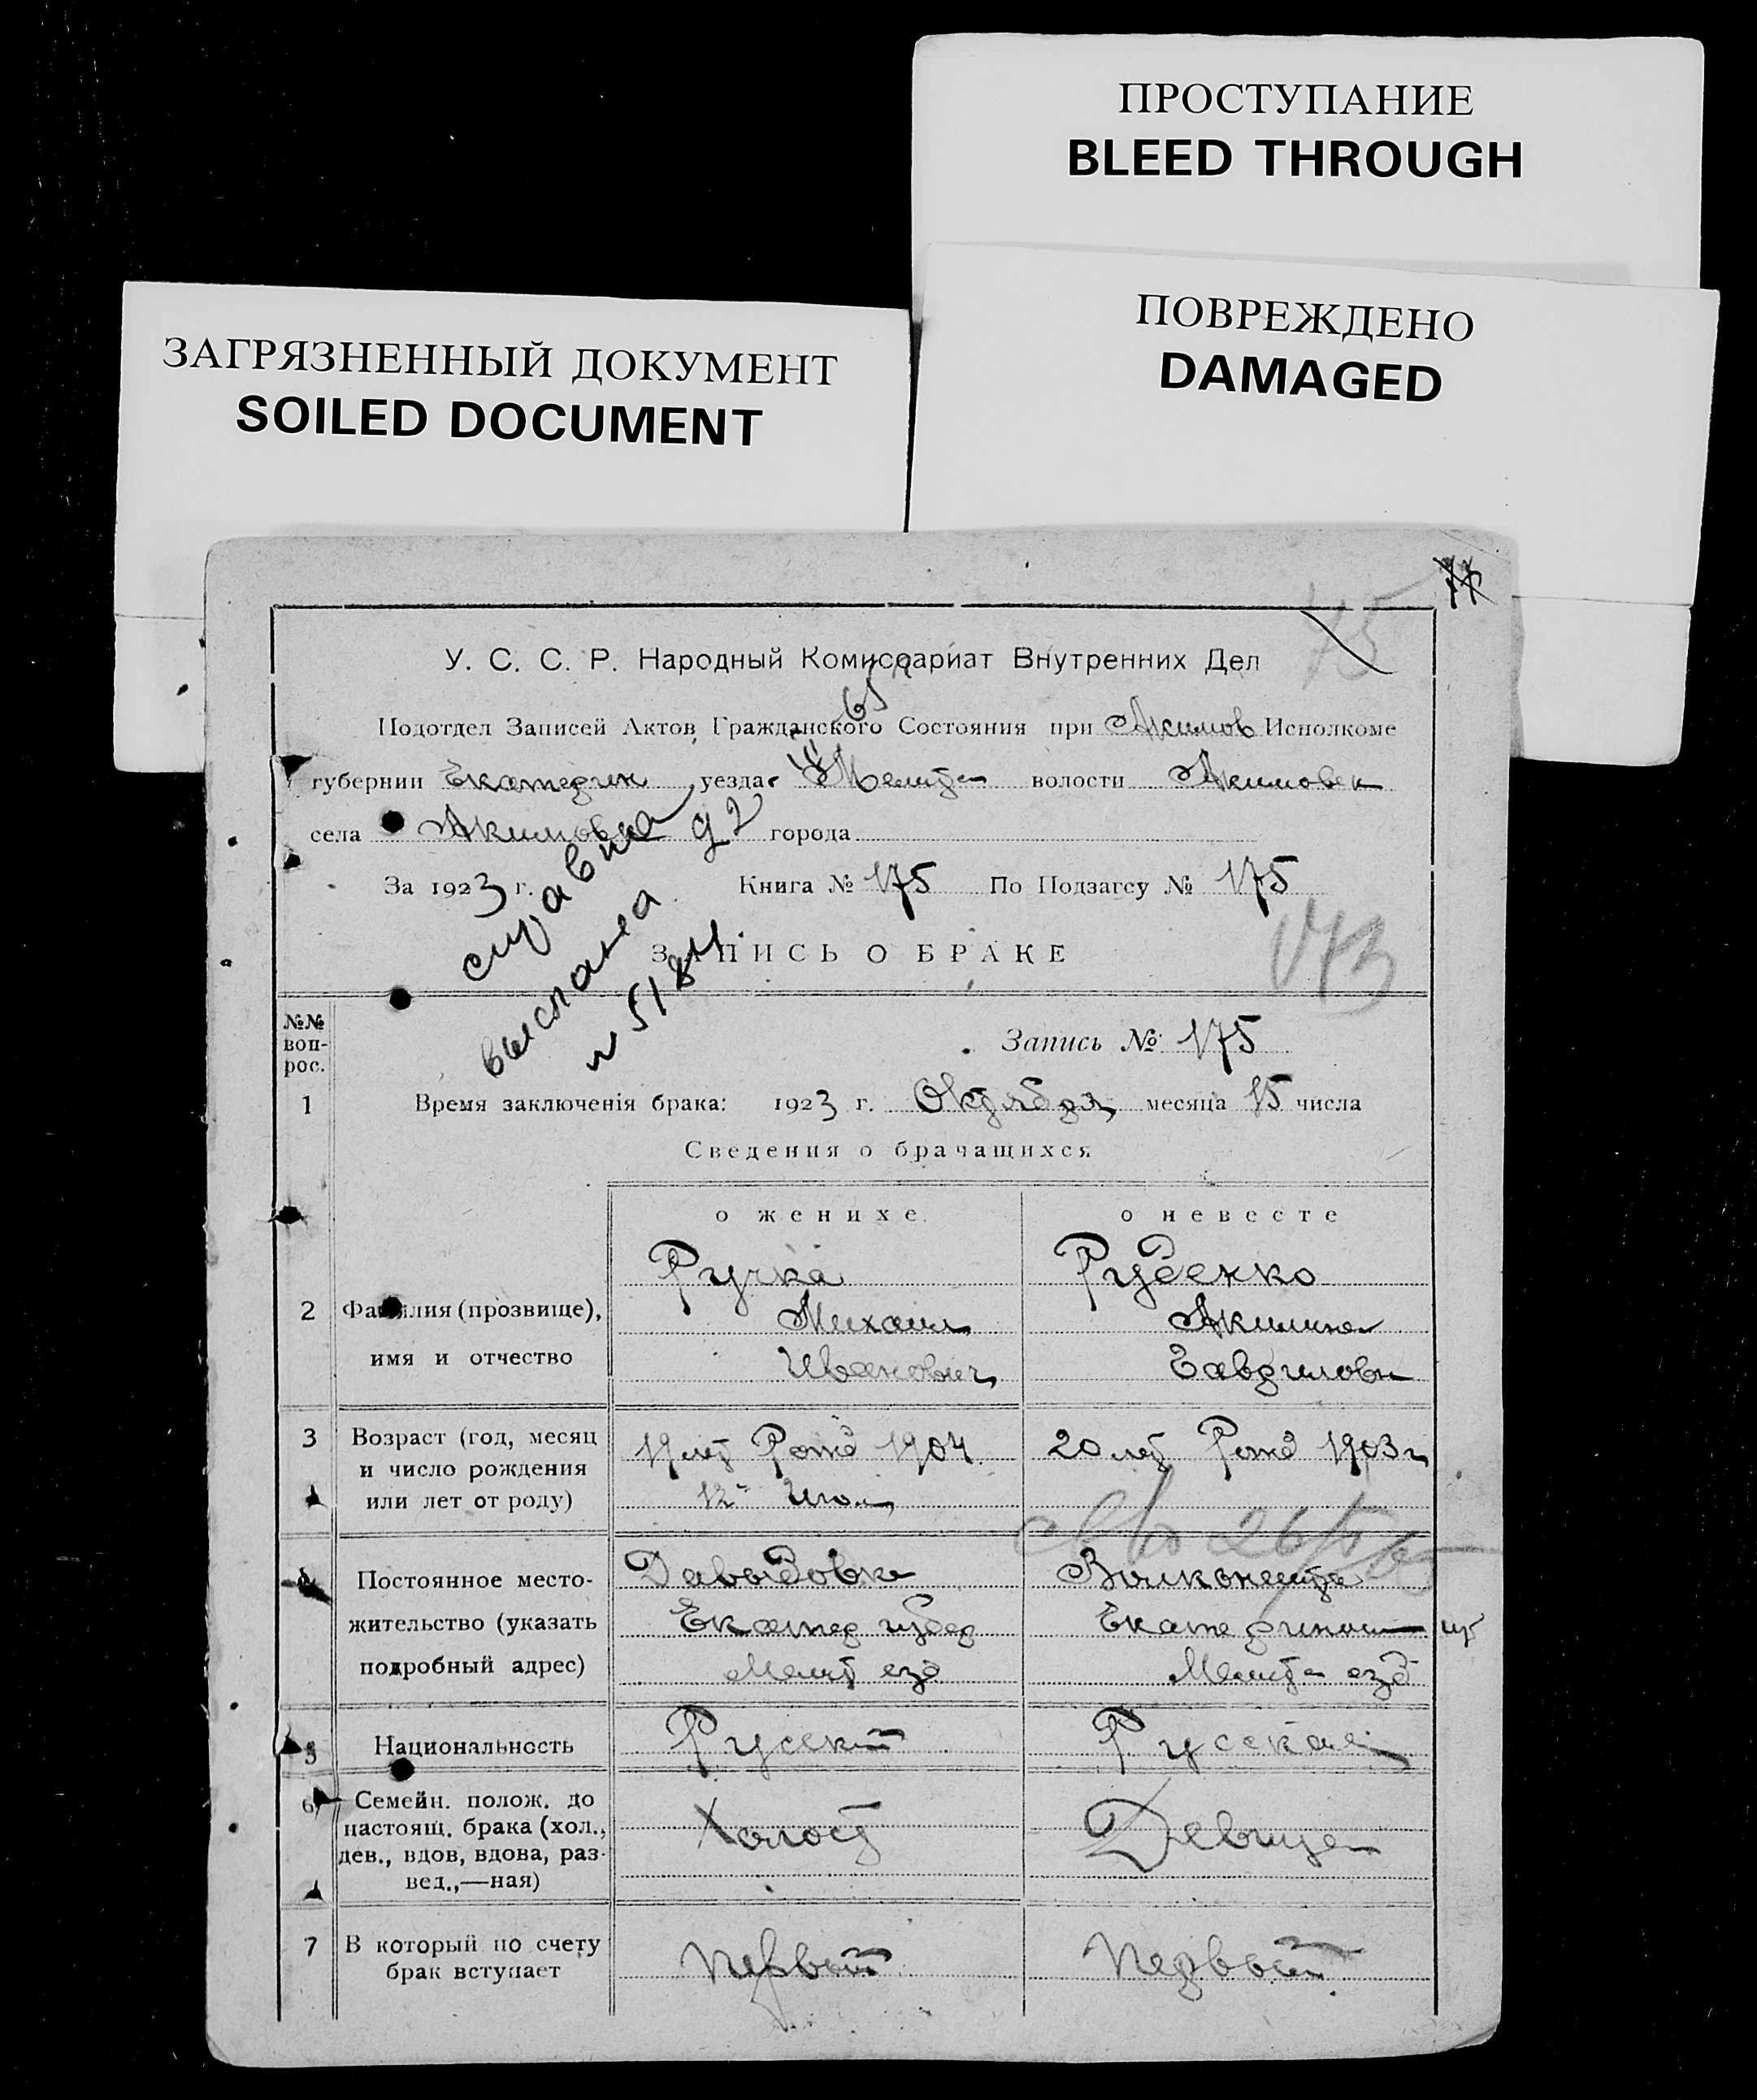 ПРОСТУПАНИЕ
BLEED THROUGH
ПОВРЕЖДЕНО
DAMAGED
ЗАГРЯЗНЕННЫЙ ДОКУМЕНТ
SOILED DOCUMENT
75
У. С. С. Р. Народный Комиссариат Внутренних Дел
Подотдел Записей Актов Гражданского Состояния при Акимов Исполкоме
губернии Екатерин уезда Мелит волости Акимовск
села Акимовка города
За 1923 г. Книга № 175 По Подзагсу № 175
справка
выслана
ЗАПИСЬ О БРАКЕ
173
№№ воп-рос.
Запись № 175
1 Время заключенія брака: 1923 г. Октября месяца 15 числа
Сведения о брачащихся
о женихе о невесте
Ручка Руденко
2 Фамилия (прозвище), Михаил Акилина
имя и отчество Иванович Гавриловн
3 Возраст (год, месяц 19 лет Рожд 1904 20 лет Рожд 1903 г
и число рождения 12
или лет от роду)
Постоянное место- Давыдовка
жительство (указать Екатер губер
подробный адрес) Мелит езд Мелит езд
5 Национальность Русский Русская
6 Семейн. полож. до
настоящ. брака (хол., Холост Девица
дев., вдов, вдова, раз-
вед.,—ная)
7 В который по счету Первый Первый
брак вступает